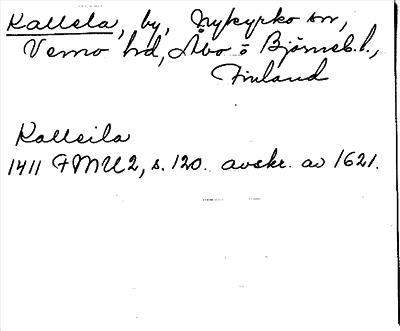 Kallela, by, Nykyrko sn,
Vemo hd, Åbo o Björneb. l.,
Finland
Kalleila
1411 FMU 2, s. 120. avskr. av 1621.